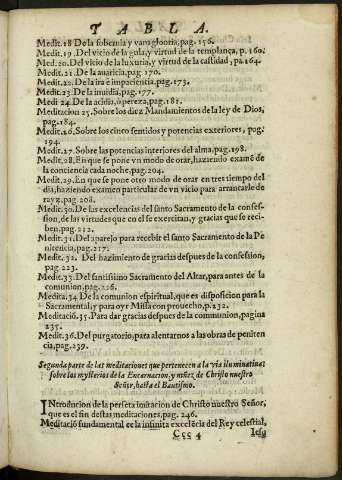 TABLA.
Medit. 18 De la soberuia y vanagloria, pag. 156.
Medit. 19. Del vicio de la gula, y virtud de la templança, p. 160.
Med. 20. Del vicio de la luxuria, y virtud de la castidad, pa. 164.
Medit. 21. De la auaricia, pag. 170.
Medit. 22. De la ira é impaciencia, pag. 173.
Medit. 23. De la inuidia, pag. 177.
Medi 24. De la acidia, ò pereza, pag. 181.
Meditacion 25. Sobre los diez Mandamientos de la ley de Dios,
pag. 184.
Medit. 26. Sobre los cinco sentidos y potencias exteriores, pag.
194.
Medit. 27. Sobre las potencias interiores del alma, pag. 198.
Medit. 28. En que se pone vn modo de orar, haziendo examē de
la conciencia cada noche, pag. 204.
Medit. 29. En que se pone otro modo de orar en tres tiempo del
dia, haziendo examen particular de vn vicio para arrancarle de
rayz, pag. 208.
Medit. 30. De las excelencias del santo Sacramento de la confes-
sion, de las virtudes que en el se exercitan, y gracias que se reci-
ben, pag. 212.
Medit. 31. Del aparejo para recebir el santo Sacramento de la Pe
nitencia, pag. 217.
Medit. 32. Del hazimiento de gracias despues de la confession,
pag. 223.
Medit. 33. Del santissimo Sacramento del Altar, para antes de la
comunion, pag. 226.
Medita. 34. De la comunion espiritual, que es disposicion para la
Sacramental, y para oyr Missa con prouecho, p. 232.
Meditació. 35. Para dar gracias despues de la communion, pagina
235.
Medit. 36. Del purgatorio, para alentarnos a las obras de peniten
cia, pag. 239.
Segunda parte de las meditaciones que pertenecen a la via iluminatiua:
sobre los mysterios de la Encarnacion, y niñez de Christo nuestro
Señor, hasta el Bautismo.
Introducion de la perfeta imitacion de Christo nuestro Señor,
que es el fin destas meditaciones, pag. 246.
Meditació fundamental de la infinita excelēcia del Rey celestial,
Cçç 4 Iesu